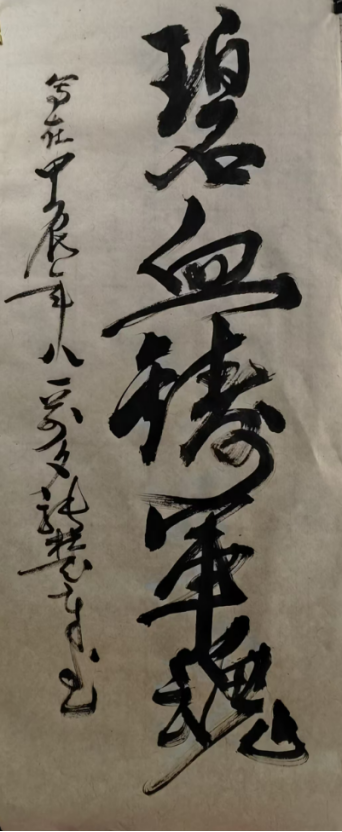 碧血铸军魂
写在甲辰年八一前夕